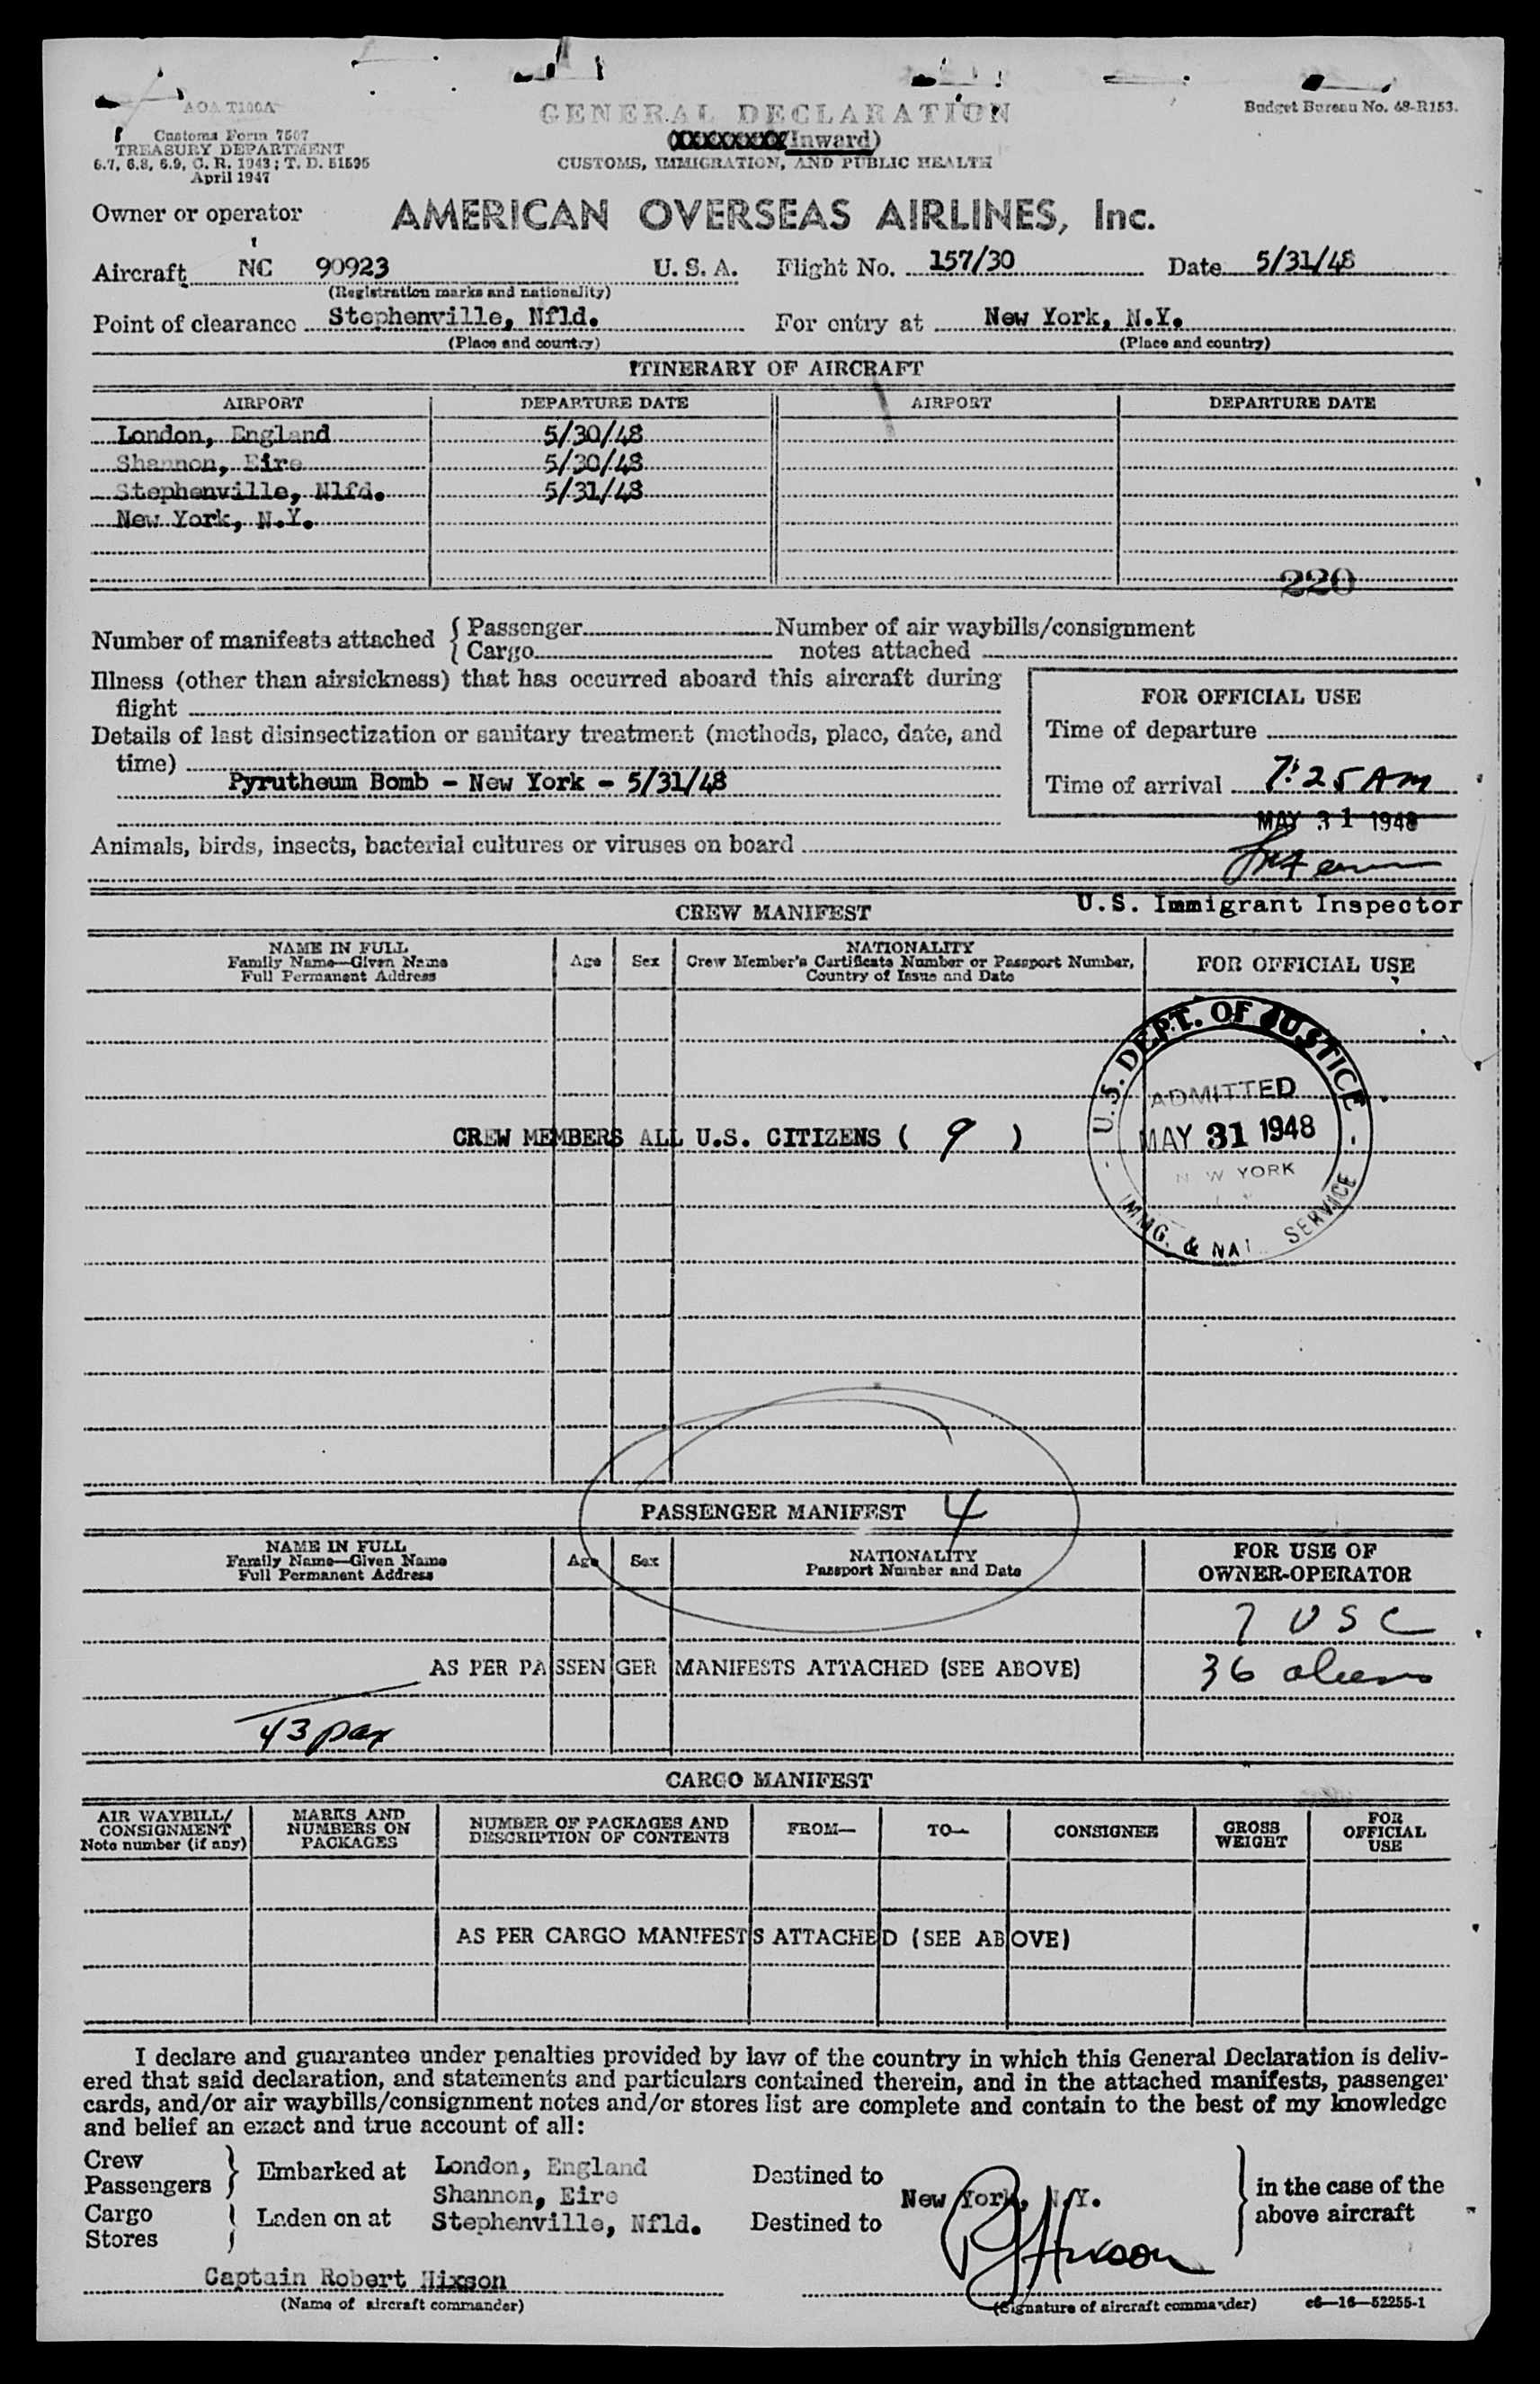 AOA T100A
GENERAL DECLARATION
Budget Bureau No. 48-R153.
Customs Form 7507
(XXXXXXXX/Inward)
TREASURY DEPARTMENT
6.7, 6.8, 6.9, C. R. 1943; T. D. 51595
CUSTOMS, IMMIGRATION, AND PUBLIC HEALTH
April 1947
Owner or operator AMERICAN OVERSEAS AIRLINES, Inc.
Aircraft NC 90923 U. S. A. Flight No. 157/30 Date 5/31/48
(Registration marks and nationality)
Point of clearance Stephenville, Nfld. For entry at New York, N.Y.
(Place and country) (Place and country)
ITINERARY OF AIRCRAFT
AIRPORT DEPARTURE DATE AIRPORT DEPARTURE DATE
London, England 5/30/48
Shannon, Eire 5/30/48
Stephenville, Nlfd. 5/31/48
New York, N.Y.
220
Number of manifests attached { Passenger Number of air waybills/consignment
Cargo notes attached
Illness (other than airsickness) that has occurred aboard this aircraft during
flight
FOR OFFICIAL USE
Details of last disinsectization or sanitary treatment (methods, place, date, and
time)
Time of departure
Pyrutheum Bomb - New York - 5/31/48
Time of arrival 7:25 AM
MAY 31 1948
Animals, birds, insects, bacterial cultures or viruses on board
U.S. Immigrant Inspector
CREW MANIFEST
NAME IN FULL
Family Name—Given Name
Full Permanent Address
Age Sex
NATIONALITY
Crew Member's Certificate Number or Passport Number,
Country of Issue and Date
FOR OFFICIAL USE
U.S. DEPT. OF JUSTICE
ADMITTED
MAY 31 1948
YORK
IMMG. & NAT. SERVICE
CREW MEMBERS ALL U.S. CITIZENS ( 9 )
PASSENGER MANIFEST 4
NAME IN FULL
Family Name—Given Name
Full Permanent Address
Age Sex
NATIONALITY
Passport Number and Date
FOR USE OF
OWNER-OPERATOR
7 USC
AS PER PASSENGER MANIFESTS ATTACHED (SEE ABOVE) 36 aliens
43 pax
CARGO MANIFEST
AIR WAYBILL/
CONSIGNMENT
Note number (if any)
MARKS AND
NUMBERS ON
PACKAGES
NUMBER OF PACKAGES AND
DESCRIPTION OF CONTENTS
FROM— TO— CONSIGNEE
GROSS
WEIGHT
FOR
OFFICIAL
USE
AS PER CARGO MANIFESTS ATTACHED (SEE ABOVE)
I declare and guarantee under penalties provided by law of the country in which this General Declaration is deliv-
ered that said declaration, and statements and particulars contained therein, and in the attached manifests, passenger
cards, and/or air waybills/consignment notes and/or stores list are complete and contain to the best of my knowledge
and belief an exact and true account of all:
Crew
Passengers } Embarked at London, England Destined to
Shannon, Eire New York, N.Y.
Cargo
Stores } Laden on at Stephenville, Nfld. Destined to
in the case of the
above aircraft
Captain Robert Hixson R Hixson
(Name of aircraft commander) (Signature of aircraft commander) c6—16—52255-1